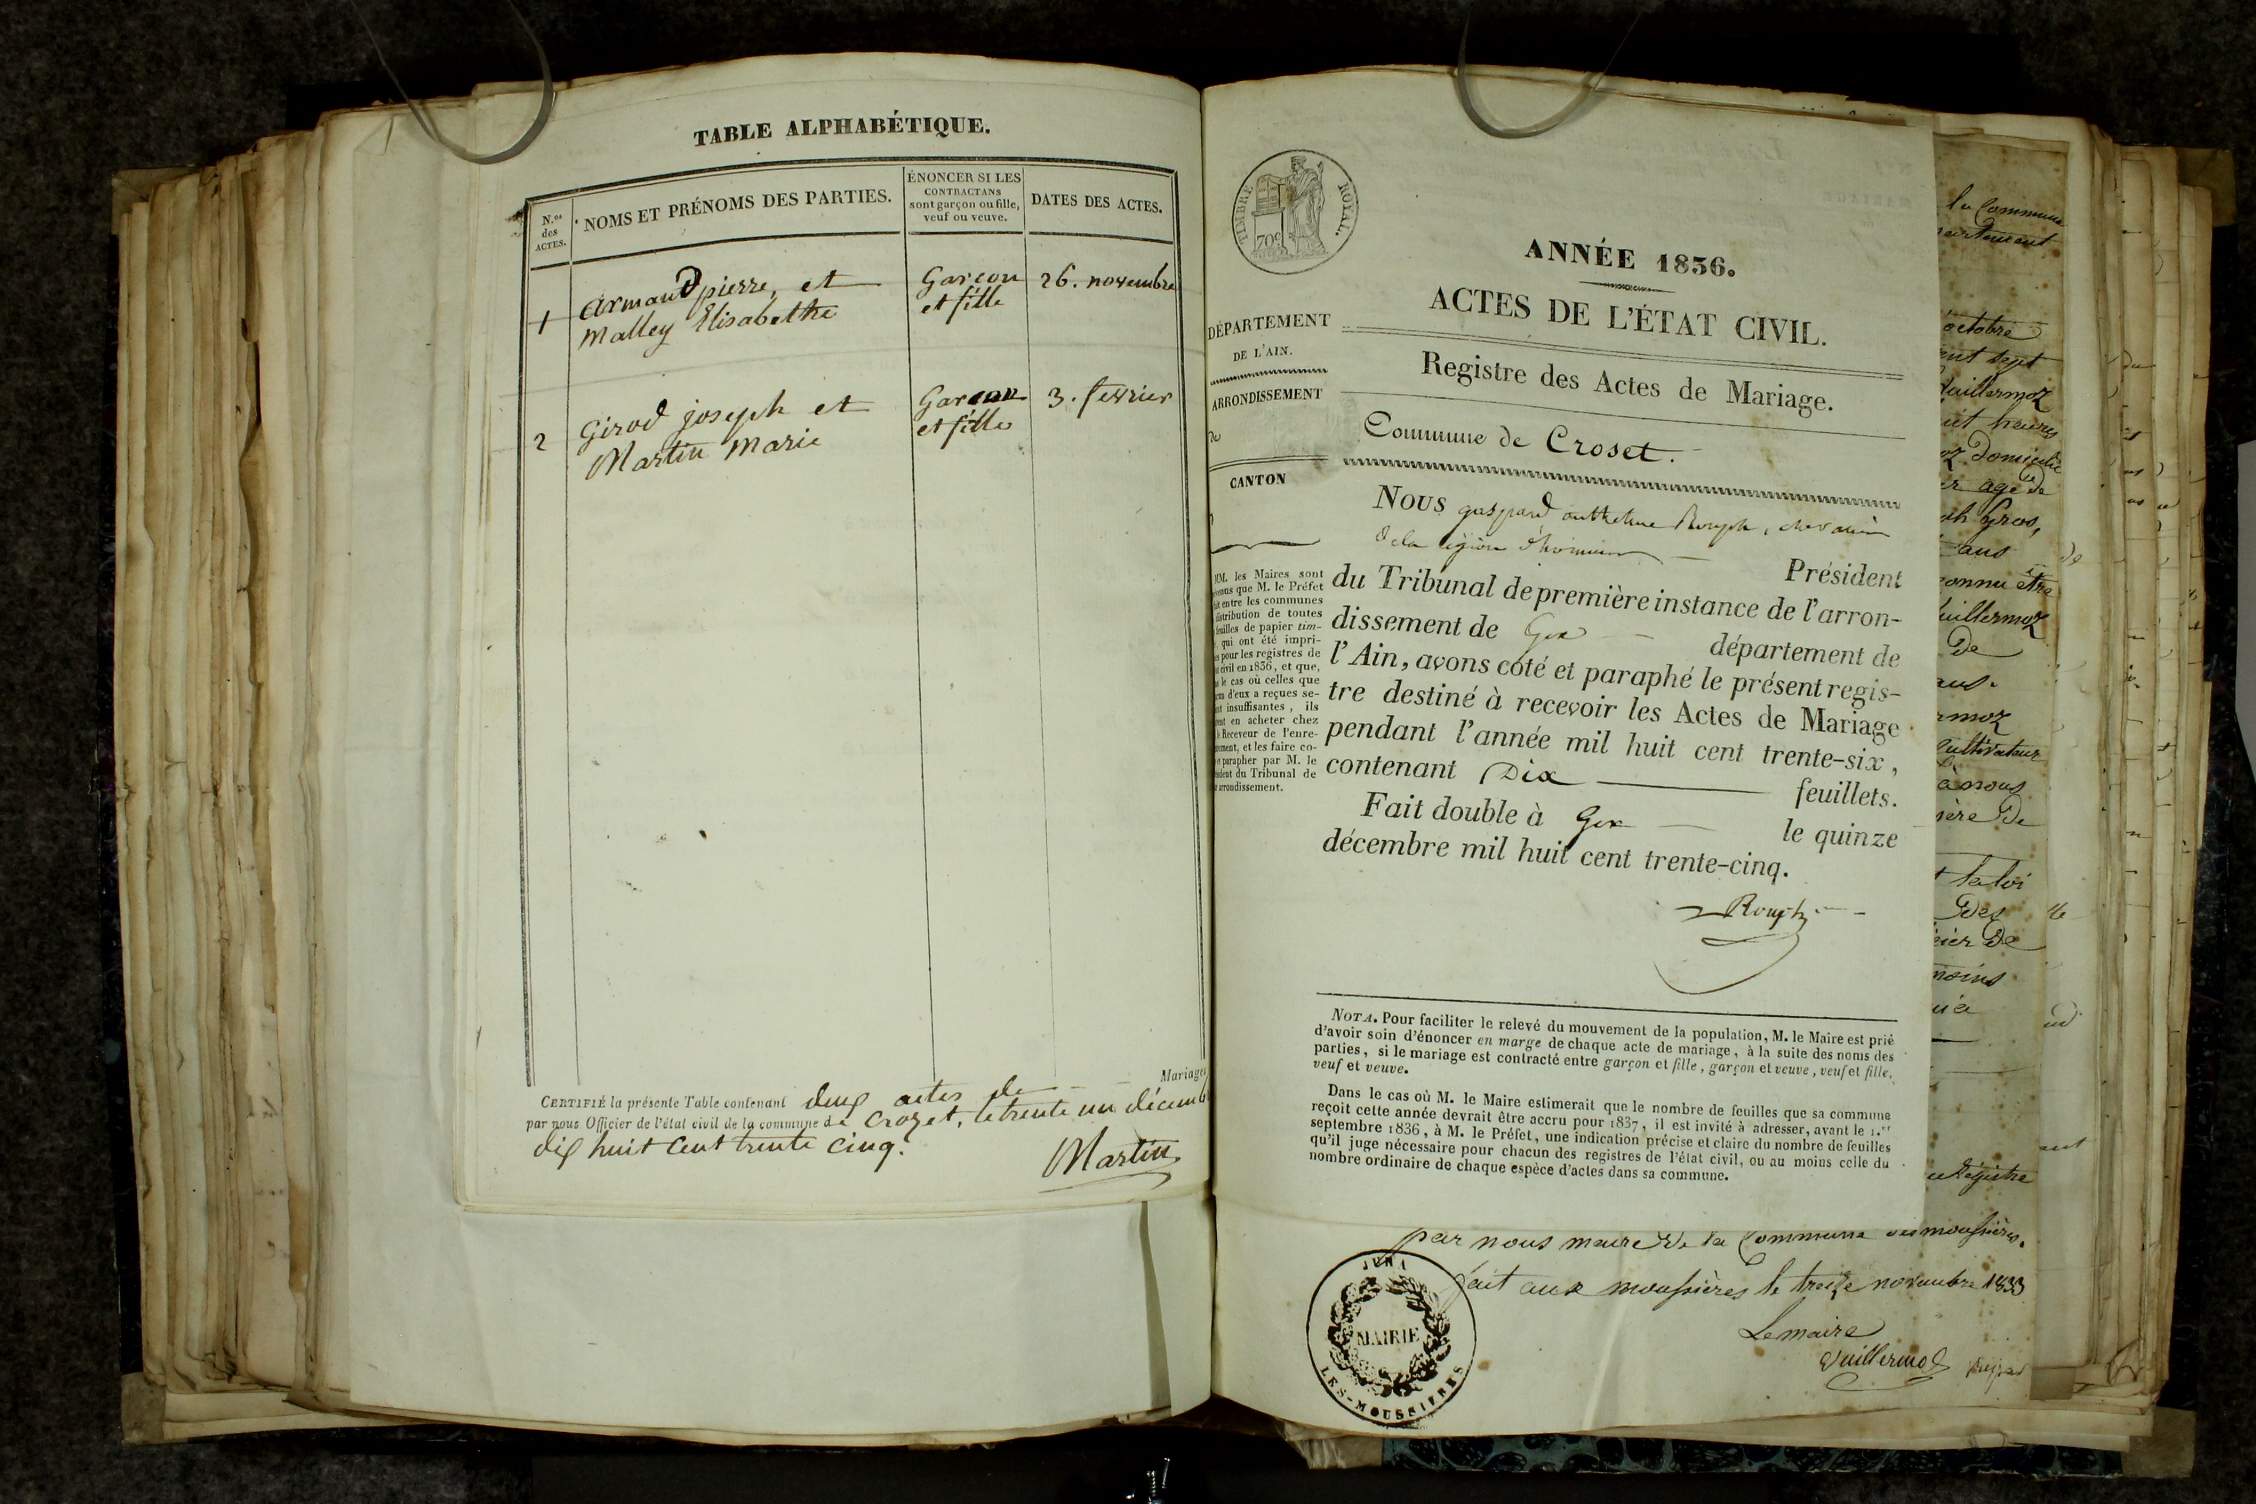 TABLE ALPHABÉTIQUE.
N.os des ACTES.
NOMS ET PRÉNOMS DES PARTIES.
ÉNONCER SI LES
CONTRACTANS
sont garçon ou fille,
veuf ou veuve.
DATES DES ACTES.
1
armand pierre, et
Malley Elisabethe
Garçon
et fille
26. novembre
2
Girod joseph et
Martin Marie
Garçon
et fille
3. fevrier
Mariage
CERTIFIÉ la présente Table contenant deux actes de
par nous Officier de l'état civil de la commune de Crozet, le trente un décemb
dix huit cent trente cinq.
Martin
TIMBRE ROYAL.
70c
ANNÉE 1836.
ACTES DE L'ÉTAT CIVIL.
DÉPARTEMENT
DE L'AIN.
ARRONDISSEMENT
de
CANTON
Registre des Actes de Mariage.
Commune de Croset.
MM. les Maires sont
que M. le Préfet
entre les communes
distribution de toutes
feuilles de papier tim-
qui ont été impri-
pour les registres de
civil en 1836, et que,
le cas où celles que
d'eux a reçues se-
insuffisantes, ils
en acheter chez
Receveur de l'enre-
et les faire co-
parapher par M. le
du Tribunal de
arrondissement.
Nous gaspard Rouph, chevalier
de la légion d'honneur Président
du Tribunal de première instance de l'arron-
dissement de Gex département de
l'Ain, avons coté et paraphé le présent regis-
tre destiné à recevoir les Actes de Mariage
pendant l'année mil huit cent trente-six,
contenant Dix feuillets.
Fait double à Gex le quinze
décembre mil huit cent trente-cinq.
Rouph
NOTA. Pour faciliter le relevé du mouvement de la population, M. le Maire est prié
d'avoir soin d'énoncer en marge de chaque acte de mariage, à la suite des noms des
parties, si le mariage est contracté entre garçon et fille, garçon et veuve, veuf et fille,
veuf et veuve.
Dans le cas où M. le Maire estimerait que le nombre de feuilles que sa commune
reçoit cette année devrait être accru pour 1837, il est invité à adresser, avant le 1.er
septembre 1836, à M. le Préfet, une indication précise et claire du nombre de feuilles
qu'il juge nécessaire pour chacun des registres de l'état civil, ou au moins celle du
nombre ordinaire de chaque espèce d'actes dans sa commune.
la Commune
octobre
sept
Vuillermoz
heures
domicilié
agé de
Gros,
ans
connu être
Vuillermoz
De
ans.
Cultivateur
à nous
De
la loi
Des
De
Registre
par nous maire de la Commune des moussières.
fait aux moussières le treize novembre 1833
Le maire
Vuillermoz
JURA
MAIRIE
LES-MOUSSIERES